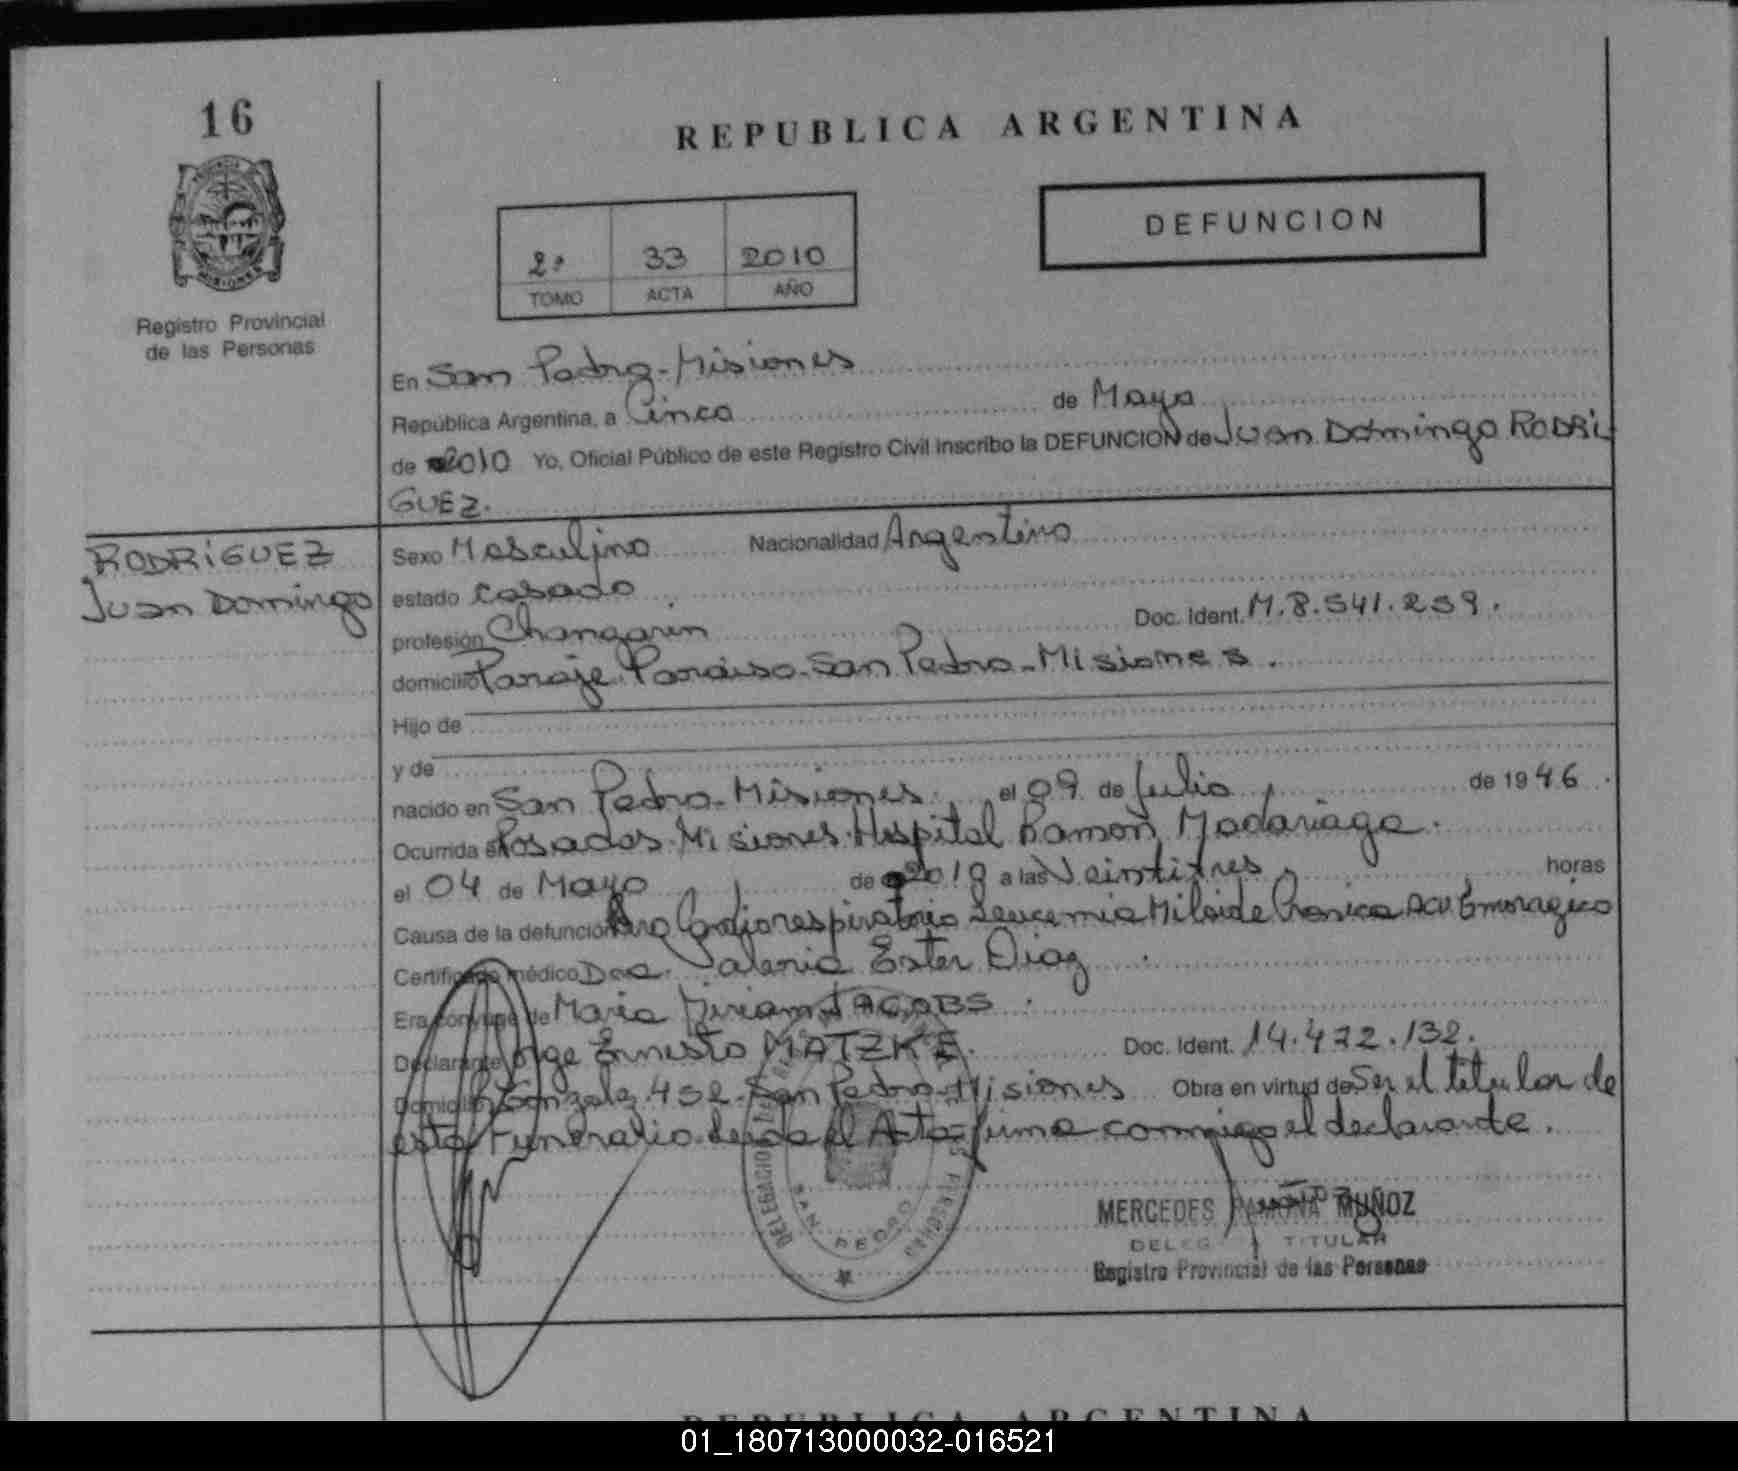 16
REPUBLICA ARGENTINA
DEFUNCION
2º 33 2010
TOMO ACTA AÑO
Registro Provincial
de las Personas
En San Pedro-Misiones
República Argentina, a Cinco de Mayo
de 2010 Yo, Oficial Público de este Registro Civil inscribo la DEFUNCION de Juan Domingo RODRI
GUEZ.
RODRIGUEZ
Juan Domingo
Sexo Masculino Nacionalidad Argentino
estado Casado
profesión Changarin Doc. Ident. M.8.541.259.
domicilio Paraje Paraiso-San Pedro-Misiones.
Hijo de
y de
nacido en San Pedro-Misiones el 09 de Julio de 1946.
Ocurrida en Posadas Misiones Hospital Ramon Madariaga.
el 04 de Mayo de 2010 a las Veintitres horas
Causa de la defunción Paro Cardiorespiratorio Leucemia Miloide Cronica ACV Emoragico
Certificado médico Dra. Valeria Ester Diaz
Era cónyuge de Maria Miriam JACOBS.
Declarante Jorge Ernesto MATZKE. Doc. Ident. 14.472.132.
Domicilio Gonzalez 452-San Pedro-Misiones Obra en virtud de Ser el titular de
esta Funeraria-leida el Acta firma conmigo el declarante.
DELEGACION
SAN PEDRO
PERSONAS
MERCEDES RAMONA MUÑOZ
DELEG TITULAR
Registro Provincial de las Personas
REPUBLICA ARGENTINA
01_180713000032-016521